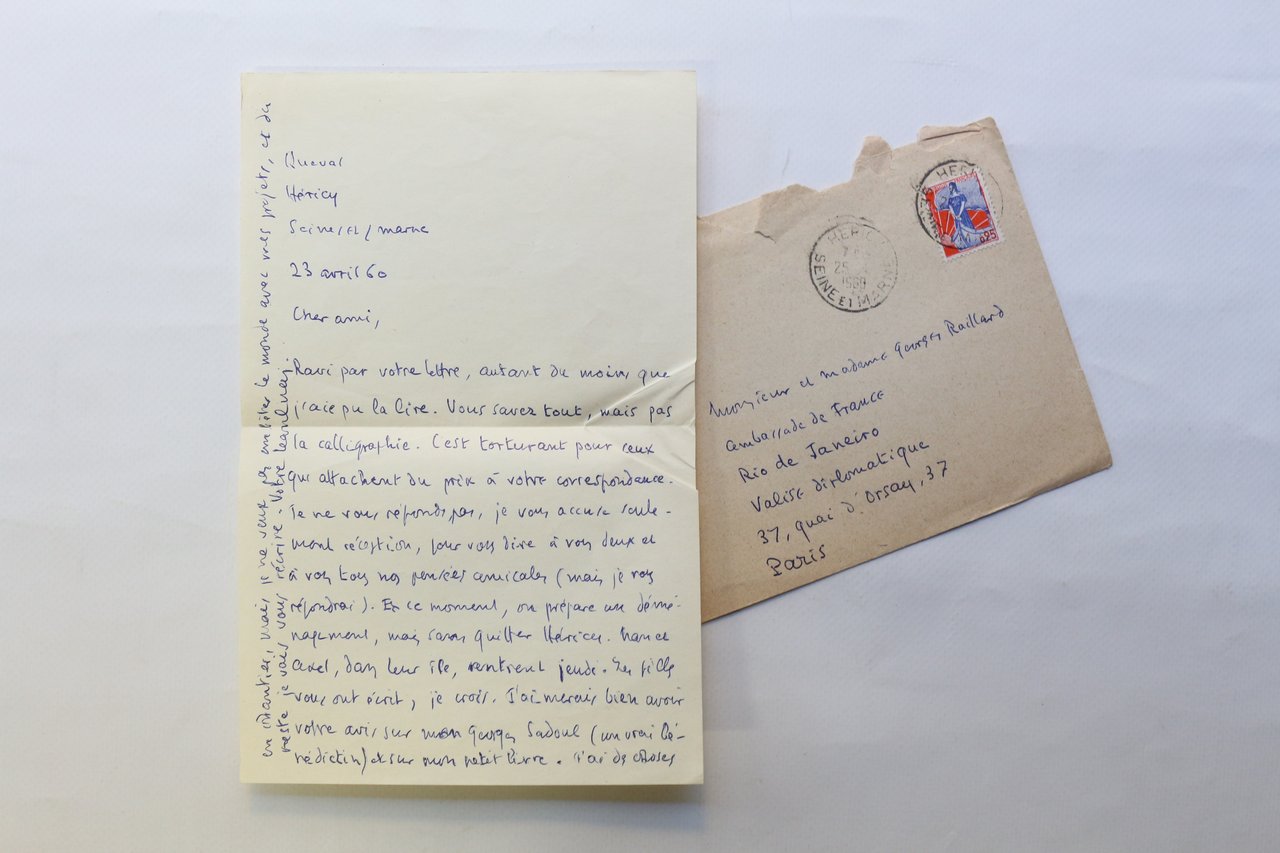 Queval
Héricy
Seine et / marne
23 avril 60
Cher ami,
Ravi par votre lettre, autant du moins que
j'aie pu la lire. Vous savez tout, mais pas
la calligraphie. C'est torturant pour ceux
qui attachent du prix à votre correspondance.
Je ne vous réponds pas, je vous accuse seule-
ment réception, pour vous dire à vous deux et
à vous tous nos pensées amicales (mais je vous
répondrai). En ce moment, on prépare un démé-
nagement, mais sans quitter Héricy. et
Axel, dans leur île, rentrent jeudi. Les filles
vous ont écrit, je crois. J'aimerais bien avoir
votre avis sur mon Georges Sadoul (un vrai bé-
nédictin) et sur mon petit livre. J'ai des choses
en chantier, mais je ne veux pas embêter le monde avec mes projets, et du
reste je vais vous récrire. Votre
HERICY
7
25
1960
SEINE ET MARNE
HERICY
SEINE ET MARNE
0,25
Monsieur et madame Georges Raillard
ambassade de France
Rio de Janeiro
Valise diplomatique
37, quai d'Orsay, 37
Paris